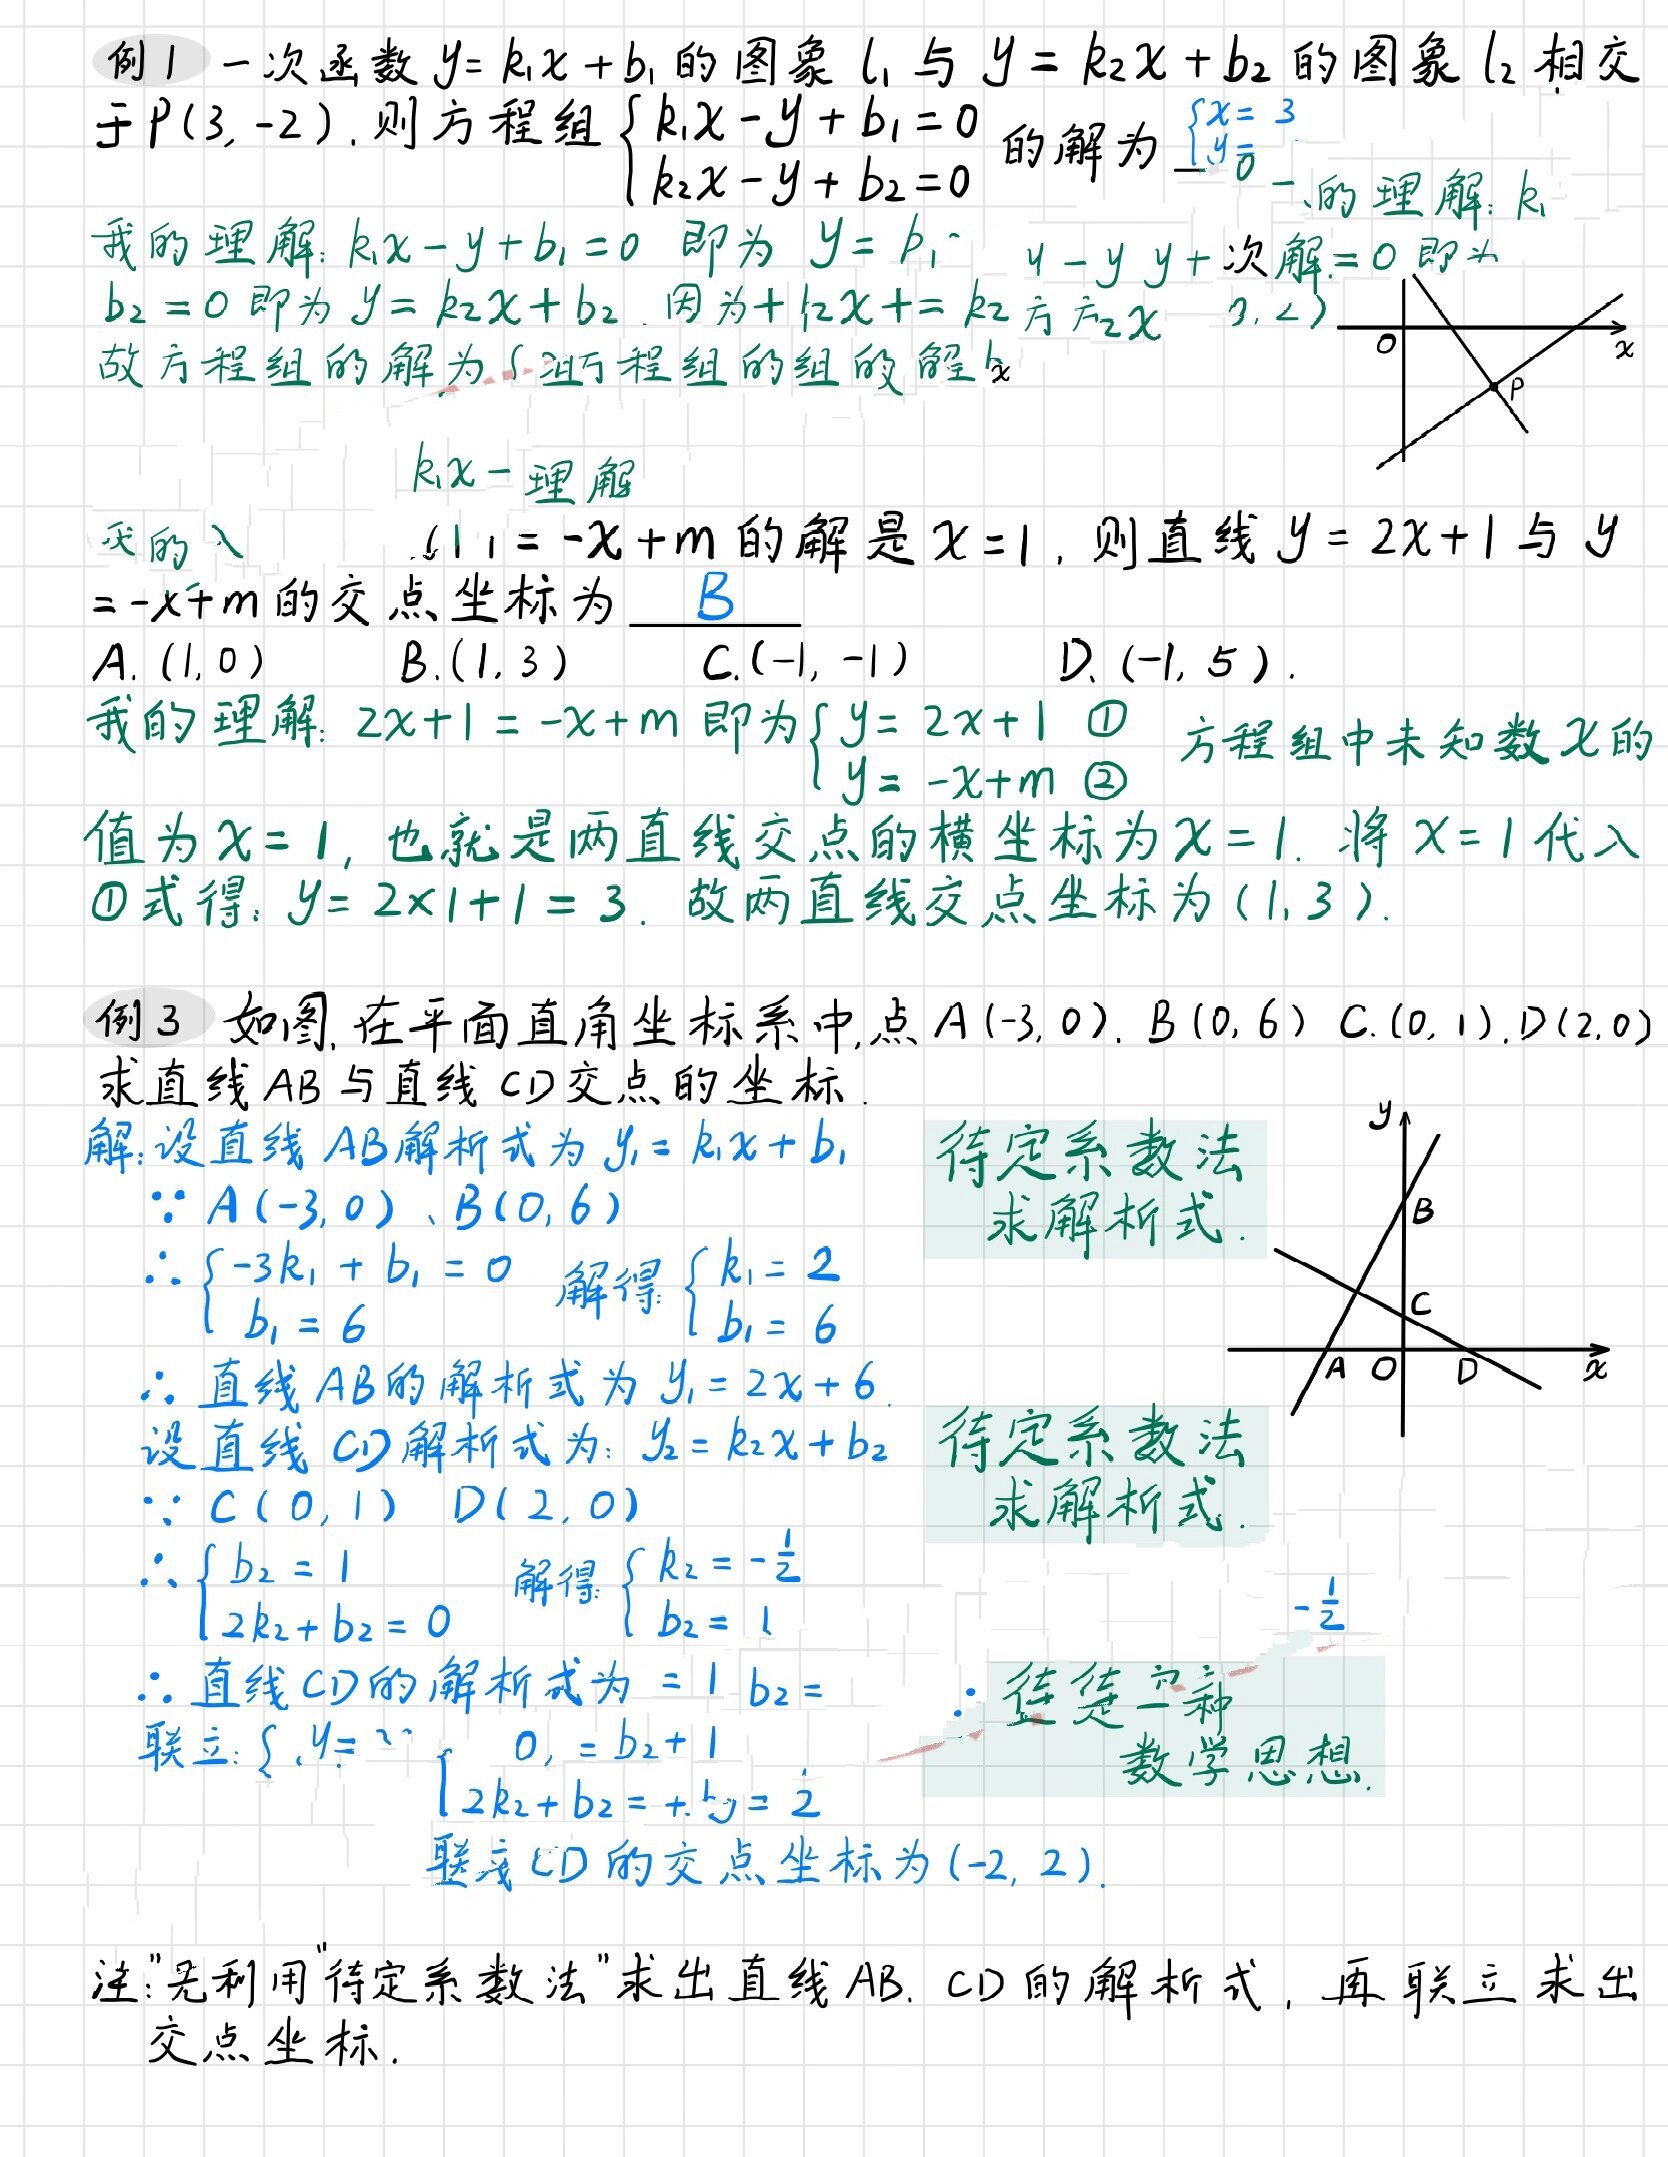 例1 一次函数 y=k₁x+b₁的图象 l₁与 y=k₂x+b₂的图象 l₂相交
于P(3,-2).则方程组 { k₁x-y+b₁=0 的解为 { x=3
k₂x-y+b₂=0 y=
的理解: k₁
我的理解: k₁x-y+b₁=0 即为 y=
b₂=0即为 y=k₂x+b₂.因为
故方程组的解为
O x P
k₁x-理解
=-x+m的解是x=1,则直线y=2x+1与y
=-x+m的交点坐标为 B
A.(1,0) B.(1,3) C.(-1,-1) D.(-1,5).
我的理解: 2x+1=-x+m 即为 { y=2x+1 ① 方程组中未知数x的
y=-x+m ②
值为x=1,也就是两直线交点的横坐标为x=1.将x=1代入
①式得: y=2×1+1=3.故两直线交点坐标为(1,3).
例3 如图,在平面直角坐标系中,点A(-3,0).B(0,6) C.(0,1).D(2,0)
求直线AB与直线CD交点的坐标.
解:设直线AB解析式为y₁=k₁x+b₁
∵ A(-3,0)、B(0,6)
∴ { -3k₁+b₁=0 解得: { k₁=2
b₁=6 b₁=6
∴ 直线AB的解析式为y₁=2x+6.
设直线CD解析式为: y₂=k₂x+b₂
∵ C(0,1) D(2,0)
∴ { b₂=1 解得: { k₂=-1/2
2k₂+b₂=0 b₂=1
∴ 直线CD的解析式为 =1 b₂=
联立: { y=
0, =b₂+1
2k₂+b₂= = 2
CD的交点坐标为(-2,2).
待定系数法
求解析式.
y B C A O D x
待定系数法
求解析式.
-1/2
数学思想.
注:"先利用"待定系数法"求出直线AB.CD的解析式,再联立求出
交点坐标.